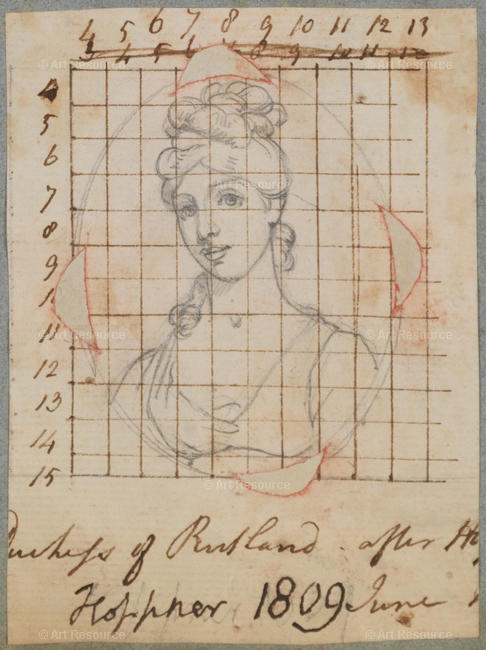 4 5 6 7 8 9 10 11 12 13
3 4 5 6 8 9 10 11 12
4
5
6
7
8
9
11
12
13
14
15
Duchess of Rutland. after
Hoppner 1809 June
© Art Resource
© Art Resource
© Art Resource
© Art Resource
© Art Resource
© Art Resource
© Art Resource
© Art Resource
© Art Resource